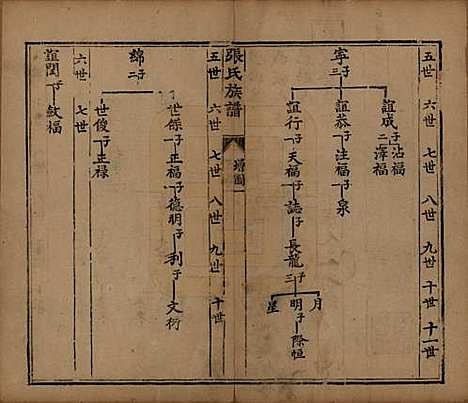 五世 六世 七世 八世 九世 十世 十一世
誼成 子二 沾福 澤福
寧 三子 誼恭 子 注福 子 泉
誼行 子 天福 子 誌 子 長龍 三子 月 明 子 際恒 星
張氏族譜
五世 六世 七世 八世 九世 十世
綿 二子 世傑 子 正福 子 德明 子 利 子 文衍
世俊 子 正祿
六世 七世
誼閏 子 敘福